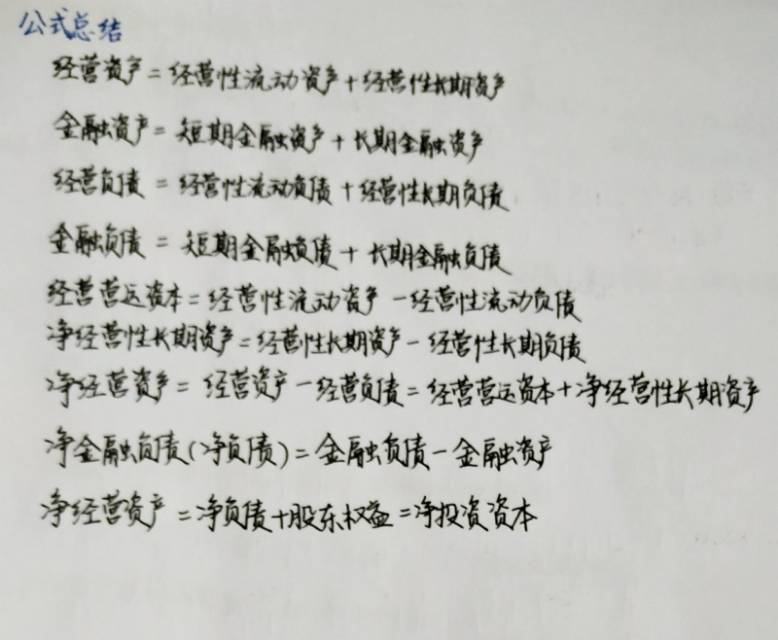 公式总结
经营资产=经营性流动资产+经营性长期资产
金融资产=短期金融资产+长期金融资产
经营负债=经营性流动负债+经营性长期负债
金融负债=短期金融负债+长期金融负债
经营营运资本=经营性流动资产-经营性流动负债
净经营性长期资产=经营性长期资产-经营性长期负债
净经营资产=经营资产-经营负债=经营营运资本+净经营性长期资产
净金融负债(净负债)=金融负债-金融资产
净经营资产=净负债+股东权益=净投资资本